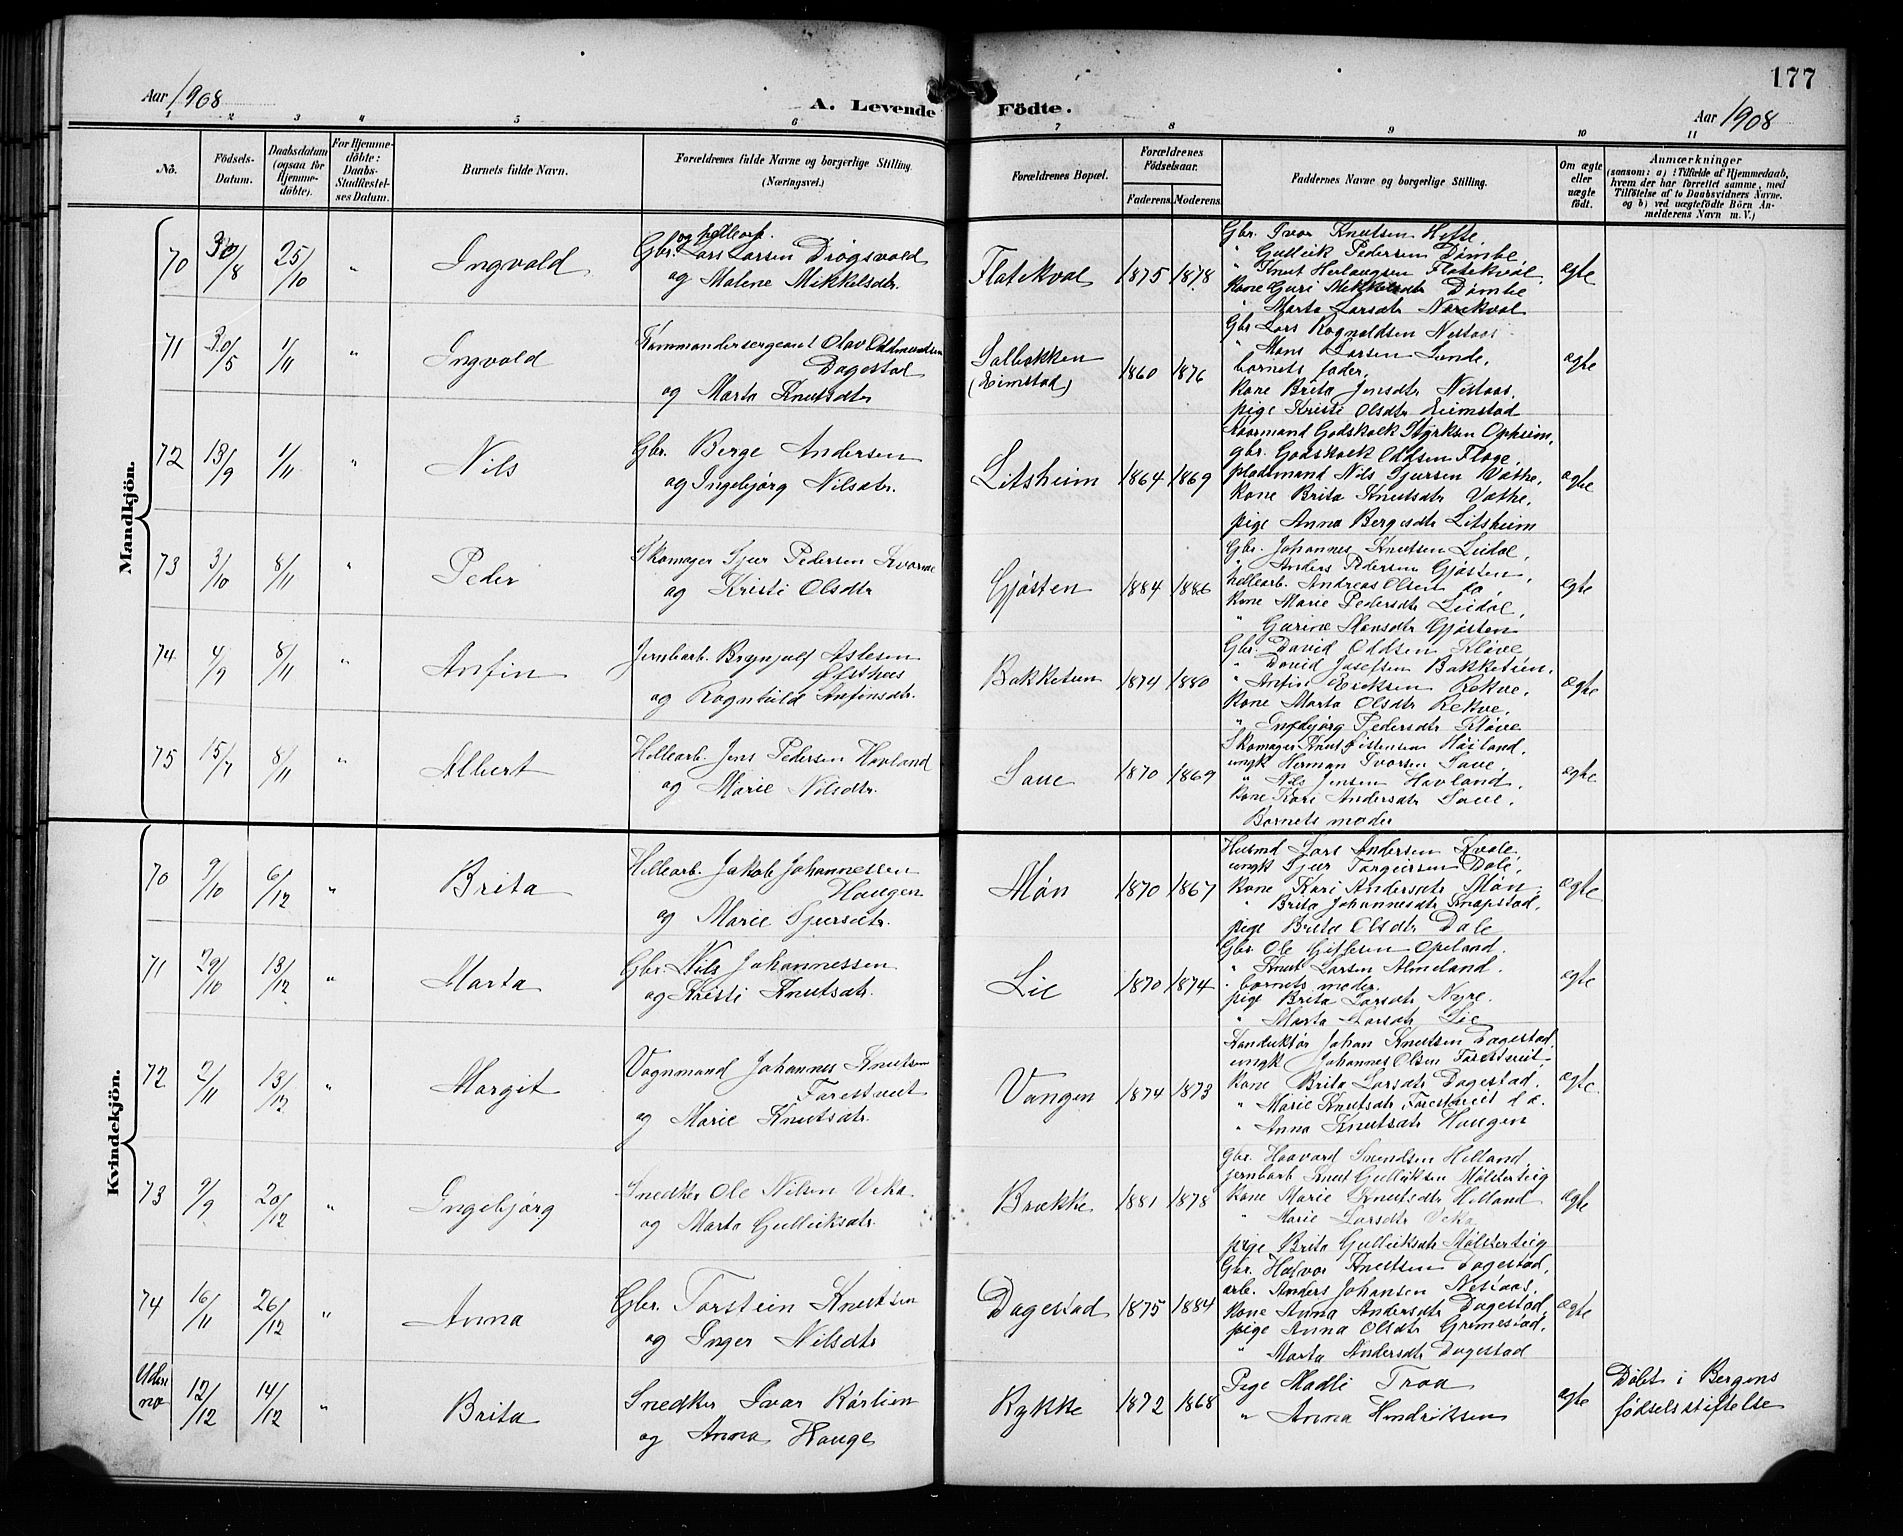 177
Aar 1908
A. Levende Födte.
Aar 1908
1 2 3 4 5 6 7 8 9 10 11
No.
Födsels-Datum.
Daabsdatum (ogsaa for Hjemme-döbte).
For Hjemme-döbte: Daabs-Stadfæstel-ses Datum.
Barnets fulde Navn.
Forældrenes fulde Navne og borgerlige Stilling. (Næringsvei.)
Forældrenes Bopæl.
Forældrenes Födselsaar.
Faderens. Moderens.
Faddernes Navne og borgerlige Stilling.
Om ægte eller uægte födt.
Anmærkninger
(saasom: a) i Tilfælde af Hjemmedaab, hvem der har forrettet samme, med Tilföielse af to Daabsvidners Navne, og b) ved uægtefödte Börn An-melderens Navn m. V.)
Mandkjön.
70 30/8 25/10 " Ingvald
og hellearb.
Gbr. Lars Larsen Drøgsvold
og Malene Mikkelsdtr.
Flatekval 1875 1878
Gbr. Ivar Knutsen Hefte,
" Gulleik Pedersen Dømbe,
" Knut Herlaugsen Flatekvål,
kone Guri Mikkelsdtr Dømbe
" Marta Larsdtr Nærekval
ægte
71 30/5 1/11 " Ingvald
Kommandersergeant Olav Oddmundsen
Dagestad
og Marta Knutsdtr
Salbakken
(Eimstad)
1860 1876
Gbr Lars Rognaldsen Nestaas
" Mons Larsen Lunde,
barnets fader,
kone Brita Jensdtr Nestaas,
pige Kristi Olsdtr Eimstad
ægte
72 13/9 1/11 " Nils
Gbr. Berge Andersen
og Ingebjørg Nilsdtr.
Litsheim 1864 1869
kaarmand Godskalk Styrksen Opheim,
gbr. Godskalk Oddsen Flage,
pladsmand Nils Sjursen Væthe,
kone Brita Knutsdtr Væthe,
pige Anna Bergesdtr Litsheim
ægte
73 3/10 8/11 " Peder
Skomager Sjur Pedersen Kvarme
og Kristi Olsdtr
Gjøsten 1884 1886
Gbr. Johannes Knutsen Leidal,
" Anders Pedersen Gjøsten,
hellearb. Andreas Olsen do,
kone Marie Pedersdtr Leidal,
" Gurine Monsdtr Gjøsten
ægte
74 4/9 8/11 " Anfin
Jernbarb. Brynjulf Aslesen
Øfsthus
og Rognhild Anfinsdtr.
Bakketun 1874 1880
Gbr. David Oddsen Kløve,
" David Josefsen Bakketun,
" Anfin Eriksen Rekve,
kone Marta Olsdtr Rekve,
" Ingebjørg Pedersdtr Kløve
ægte
75 15/7 8/11 " Albert
Hellearb. Jens Pedersen Hovland
og Marie Nilsdtr.
Saue 1870 1869
Skomager Knut Eistensen Høiland,
ungk Herman Ivarsen Saue,
" Nils Jensen Hovland,
kone Kari Andersdtr Saue,
Barnets moder
ægte
Kvindekjön.
70 9/10 6/12 " Brita
Hellearb. Jakob Johannessen
Haugen
og Marie Sjursdtr.
Møn 1870 1867
Husmd Lars Andersen Kvale,
ungk Sjur Torgeirsen Dale,
kone Kari Andersdtr Møn,
" Brita Johannesdtr Knapstad,
pige Brita Olsdtr Dale
ægte
71 29/10 13/12 " Marta
Gbr. Nils Johannessen
og Kristi Knutsdtr.
Lie 1870 1874
Gbr. Ole Gitlesen Opeland.
" Knut Larsen Almeland.
barnets moder.
pige Brita Larsdtr Nyre.
" Marta Larsdtr Lie
ægte
72 2/11 13/12 " Margit
Vognmand Johannes Knutsen
Forestveit
og Marie Knutsdtr.
Vangen 1874 1873
Konduktør Johan Knutsen Dagestad,
ungk Johannes Olsen Forestveit,
kone Brita Larsdtr Dagestad.
" Marie Knutsdtr Forestveit
" Anna Knutsdtr Haugen
ægte.
73 9/9 20/12 " Ingebjørg
Snedker Ole Nilsen Veka
og Marta Gulleiksdtr.
Brække 1881 1878
Gbr. Haavard Svendsen Helland
jernbarb Knut Gulleiksen Mølsterteig
kone Marie Knutsdtr Helland
" Marie Larsdtr Veka
pige Brita Gulleiksdtr Mølsterteig
ægte
74 16/11 26/12 " Anna
Gbr. Torstein Knutsen
og Inger Nilsdtr
Dagestad 1875 1884
Gbr. Halvor Knutsen Dagestad,
arb. Anders Johansen Nestaas,
kone Anna Andersdtr Dagestad,
pige Anna Olsdtr Grimestad,
" Marta Andersdtr Dagestad
ægte
Uden no 12/12 14/12 " Brita
Snedker Ivar Rørlien
og Anna Hauge
Rykke 1872 1868
Pige Madli Troa
" Anna Hendriksen
ægte
Døbt i Bergens
fødselsstiftelse